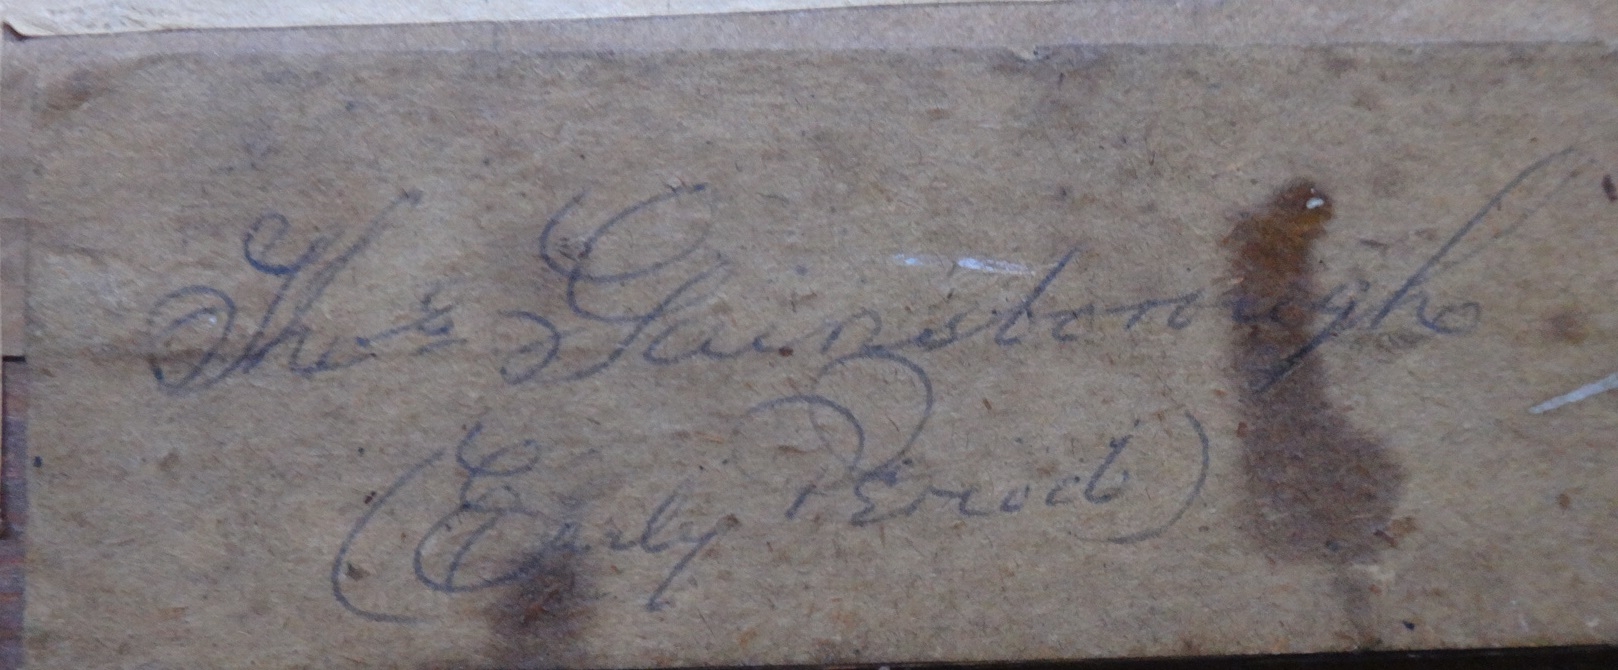 Thos Gainsborough
(Early Period)